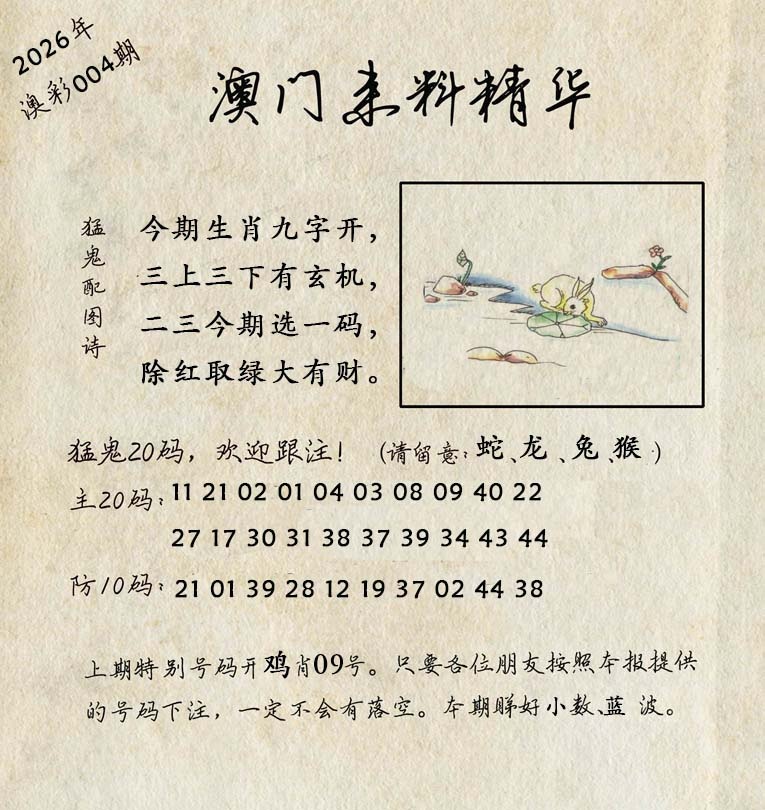 2026年
澳彩004期
澳门来料精华
猛鬼配图诗
今期生肖九字开，
三上三下有玄机，
二三今期选一码，
除红取绿大有财。
猛鬼20码，欢迎跟注！（请留意：蛇、龙、兔、猴）
主20码：11 21 02 01 04 03 08 09 40 22
27 17 30 31 38 37 39 34 43 44
防10码：21 01 39 28 12 19 37 02 44 38
上期特别号码开鸡肖09号。只要各位朋友按照本报提供
的号码下注，一定不会有落空。本期睇好小数、蓝波。